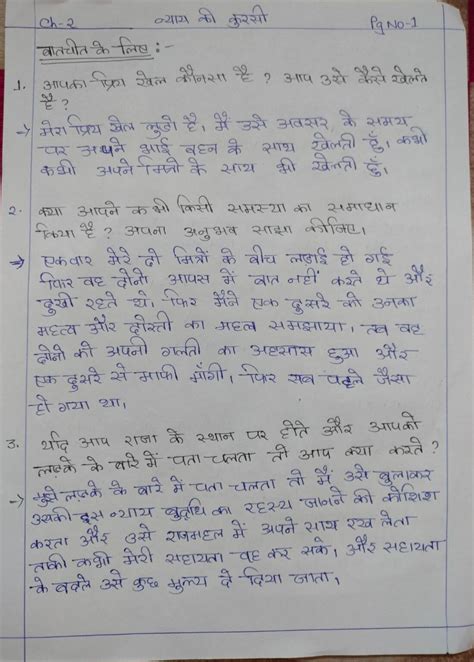 Ch-2 न्याय की कुरसी Pg No-1
बातचीत के लिए :-
1. आपका प्रिय खेल कौनसा है ? आप उसे कैसे खेलते
है ?
→ मेरा प्रिय खेल लुडो है, मैं उसे अवसर के समय
पर अपने भाई बहन के साथ खेलती हूँ, कभी
कभी अपने मित्रो के साथ भी खेलती हूँ,
2. क्या आपने कभी किसी समस्या का समाधान
किया है ? अपना अनुभव साझा कीजिए,
→ एकबार मेरे दो मित्रों के बीच लड़ाई हो गई
फिर वह दोनो आपस में बात नहीं करते थे और
दुखी रहते थे, फिर मैंने एक दुसरे को उनका
महत्व और दोस्ती का महत्व समझाया, तब वह
दोनो को अपनी गलती का अहसास हुआ और
एक दुसरे से माफी माँगी, फिर सब पहले जैसा
हो गया था,
3. यदि आप राजा के स्थान पर होते और आपको
लड़के के बारे में पता चलता तो आप क्या करते ?
→ मुझे लड़के के बारे में पता चलता तो मैं उसे बुलाकर
उसकी इस न्याय बुद्धि का रहस्य जानने की कोशिश
करता और उसे राजमहल में अपने साथ रख लेता
ताकी कभी मेरी सहायता वह कर सके, और सहायता
के बदले उसे कुछ मुल्य दे दिया जाता,